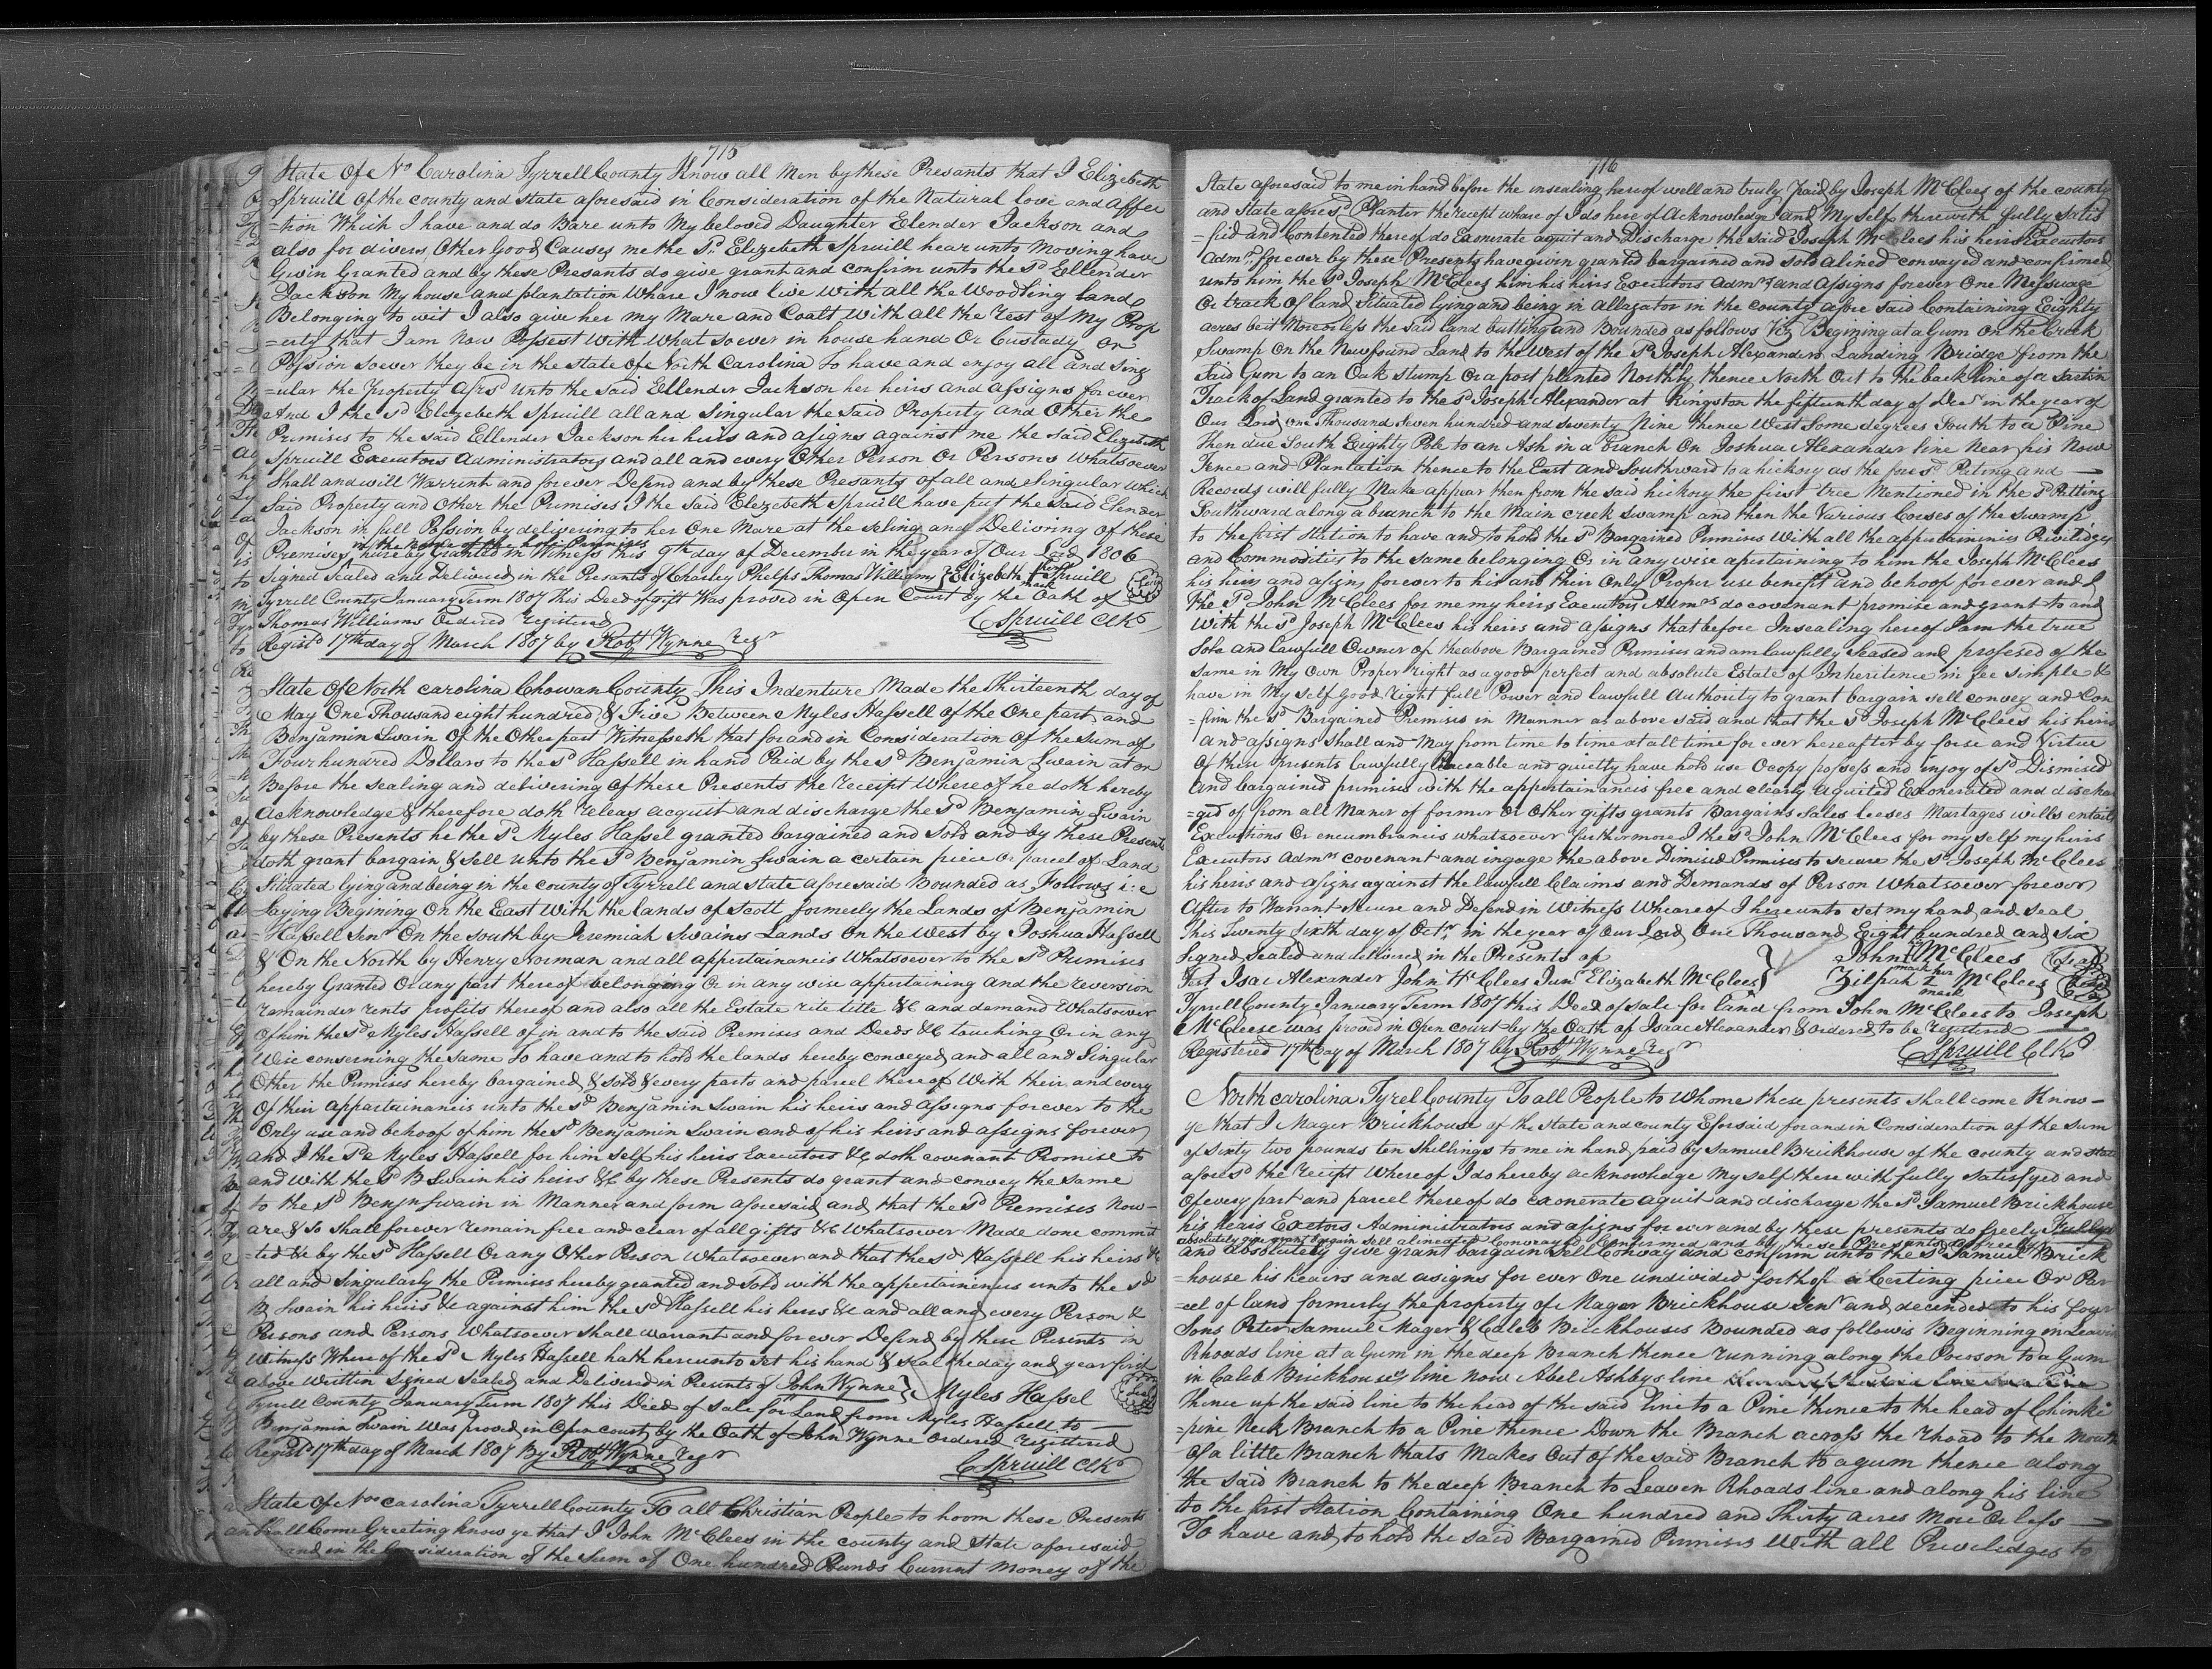 715
State Of No Carolina Tyrrell County Know all Men by these Presants that I Elizebeth
Spruill Of the county and state aforesaid in Consideration of the Natural love and Affec
=tion Which I have and do Bare unto My beloved Daughter Elender Jackson and
also for divers Other Good Causes me the Sd Elizebeth Spruill hear unto Moving have
Givin Granted and by these Presants do give grant and confirm unto the Sd Ellender
Jackson My house and plantation Whare I now live With all the Woodling land
Belonging to wit I also give her My Mare and Coalt With all the rest of My Prop
=erty that I am Now Possest With What so ever in house hand Or Custady or
Possion soever they be in the state Of North Carolina To have and enjoy all and Sing
=ular the Property afrsd unto the said Ellender Jackson her hiers and assigns forever
And I the Sd Elezebeth Spruill all and Singular the said Property and Other the
Primises to the said Ellender Jackson her hiers and asigns against me the said Elizebeth
Spruill Executors Administrators and all and every Other Person Or Persons Whatsoever
Shall and will Warrint and forever Defend and by these Presants of all and Singular Which
Said Property and Other the Primises I the Said Elezebeth Spruill have put the Said Elender
Jackson in full Possion by delivering to her One Mare at the Seling and Delivring Of these
in the Name of the hole Primises
Premises hereby Granted in Witness this 9th day of December in the year of Our Lord 1806
Signed Sealed and Delivered in the Presants of Charley Phelps Thomas Williams } Elizebeth her mark Spruill Seal
Tyrrell County January Term 1807 This Deed of gift Was proved in Open Court by the Oath of
Thomas Williams Ordered Registered C Spruill Clk
Registd 17th day of March 1807 by Robt Wynne Regr
State Of North carolina Chowan County This Indenture Made the Thirteenth day of
May One Thousand eight hundred & Five Between Myles Hassell of the One part and
Benjamin Swain Of the Other part Witnesseth that for and in Consideration Of the Sum of
Four hundred Dollars to the Sd Hassell in hand Paid by the Sd Benjamin Swain at or
Before the Sealing and delivering Of these Presents the receipt Whereof he doth hereby
Acknowledge & therefore doth releas acquit and discharge the Sd Benjamin Swain
by these Presents he the Sd Myles Hassel granted bargained and Sold and by these Presents
doth grant bargain & sell unto the Sd Benjamin Swain a certain piece or parcel of Land
Situated lying and being in the county of Tyrrell and state aforesaid Bounded as Follows i:e
Laying Begining On the East With the lands of Scott formerly the Lands of Benjamin
Hassell Senr On the south by Jeremiah Swains Lands On the West by Joshua Hassell
& On the North by Henry Norman and all appertainancis Whatsoever to the Sd Primises
hereby Granted Or any part thereof belonging Or in any wise appertaining and the reversion
remainder rents profits thereof and also all the Estate rite title &C and demand Whatsoever
Of him the Sd Myles Hassell of in and to the said Premises and Deeds &C touching Or in any
Wise conserning the same To have and to hold the lands hereby conveyed and all and Singular
Other the Primises hereby bargained & sold & every parts and parcel thereof With their and every
Of their appartainancis unto the Sd Benjamin Swain his heirs and assigns forever to the
Only use and behoof of him the Sd Benjamin Swain and of his heirs and assigns forever
And I the Sd Myles Hassell for him self his heirs Executors &C doth covenant Promise to
and with the Sd B Swain his heirs &C by these Presents do grant and convey the same
to the Sd Benjn Swain in Manner and form aforesaid and that the Sd Premises Now
are & So Shall forever remain free and clear of all gifts &C Whatsoever Made done commit
=ted &c by the Sd Hassell Or any Other Person Whatsoever and that the Sd Hassell his heirs &c
all and Singularly the Primises hereby granted and Sold with the appertainences unto the Sd
B Swain his heirs &c against him the Sd Hassell his heirs &c and all and every Person &
Persons and Persons Whatsoever shall warrant and forever Defend by these Presents in
Witness Where of the Sd Myles Hassell hath hereunto set his hand & seal the day and year first
above Written Signed Sealed and Delivered in Presents of John Wynne } Myles Hassel Seal
Tyrrell County January Term 1807 this Deed of Sale for Land from Myles Hassell to
Benjamin Swain Was proved in Open Court by the Oath of John Wynne Ordered registered
Registd 17th day of March 1807 By Robt Wynne Regr C Spruill Clk
State Of No carolina Tyrrell County To all Christian People to hoom these Presents
Shall Come Greeting know ye that I John McClees in the county and State aforesaid
and in the Consideration of the Sum of One hundred Pounds Current Money of the
716
State aforesaid to me in hand before the insealing hereof well and truly Paid by Joseph McClees of the county
and State aforesd Planter the recept whare of I do here of Acknowledge and My Self therewith fully Satis
=fied and Contented thereof do Exonerate aquit and Discharge the said Joseph McClees his heirs Executors
Admrs forever by these Presents have givin granted bargained and sold alined convayed and confirmed
unto him the Sd Joseph McClees him his hiers Executors Admrs and Assigns forever One Messuage
Or track Of land Situated lying and being in Allagator in the county afore Said Containing Eighty
acres be it More or less the said Land butting and Bounded as follows Viz Begining at a Gum On the Creek
Swamp On the Newfound Land to the West of the Sd Joseph Alexanders Landing Bridge from the
Said Gum to an Oak stump Or a post planted Northly thence North Out to the back line of a sartin
Track of Land granted to the Sd Joseph Alexander at Kingston the fifteenth day of Decr in the year of
Our Lord One Thousand Seven hundred and seventy Nine thence West Some degrees South to a Pine
then due South Eighty Pole to an Ash in a branch On Joshua Alexander line Near his Now
Fence and Plantation thence to the East and Southward to a hickory as the fore sd Pating and
Records will fully Make appear then from the said hickory the first tree Mentioned in the Sd Patting
Southward along a branch to the Main creek swamp and then the Various Corses of the Swamp
to the first Station to have and to hold the Sd Bargained Primises With all the appertaininies Priviledges
and Commodities to the same belonging Or in any wise apertaining to him the Joseph McClees
his heirs and asigns forever to his and their Only Proper use benefit and behoof forever and I
the Sd John McClees for me my heirs Executors Admrs do covenant promise and grant to and
With the Sd Joseph McClees his heirs and assigns that before Insealing hereof I am the true
Sole and Lawfull Owner of the above Bargained Primises and am lawfully Seased and profesed of the
Same in My Own Proper right as a good perfect and absolute Estate of Inheritence in fee simple &
have in My Self good right full Power and lawfull Authority to grant bargain sell convey and Con
=firm the Sd Bargained Premises in Manner as above said and that the Sd Joseph McClees his heirs
and assigns shall and May from time to time at all time for ever hereafter by forse and Virtue
Of these Presents lawfully Peaceable and quietly have hold use Ocopy possess and injoy of Sd Dismised
And bargained primises with the appertainancis free and clearly Aquited Exonerated and discha
=ged of from all Maner of former Or Other gifts grants Bargains Sales leeses Martages wills entails
Executions Or encumbrancis whatsoever furthermore I the Sd John McClees for my self my heirs
Executors Admrs covenant and ingage the above Dimised Primises to secure the Sd Joseph McClees
his heirs and asigns against the lawfull Claims and Demands of Person Whatsoever forever
After to Warrant Secure and Defend in Witness Wheare of I hereunto set my hand and seal
This Twenty Sixth day of Octr in the year of Our Lord One Thousand Eight hundred and Six
Signed Sealed and delivered in the Presents of John his mark McClees Seal
Test Isac Alexander John McClees Junr Elizabeth McClees } Zilpah her mark McClees Seal
Tyrrell County January Term 1807 this Deed of sale for land from John McClees to Joseph
McCleese was proved in Open court by the Oath of Isaac Alexander & Ordered to be registered
Registered 17th Day of March 1807 by Robt Wynne Regr C Spruill Clk
North carolina Tyrel County To all People to Whome these presents shall come Know
ye that I Mager Brickhouse of the State and county Eforsaid for and in Consideration of the sum
of Sixty two pounds ten shillings to me in hand paid by Samuel Brickhouse of the county and state
afore sd the receipt Whereof I do hereby acknowledge My self there with fully Satisfyed and
Of every part and parcel there of do exonerate aquit and discharge the Sd Samuel Brickhouse
his heairs Exctors Administrators and asigns for ever and by these presents do freely
absolutely give grant bargain Sell alineated Convayed Confirmed and by these Presents do freely
and absolutely give grant bargain Sell Convay and confirm unto the Sd Samuel Brick
=house his heairs and asigns for ever One undivided forth of a Certing piece Or Par
=cel of land formerly the property of Mager Brickhouse Senr and decended to his four
Sons Peter Samuel Mager & Caleb Brickhouses Bounded as follows Beginning in Leaven
Rhoads line at a Gum in the deep Branch thence running along the Poerson to a Gum
in Caleb Brickhouses line Now Abel Ashbys line
thence up the said line to the head of the said line to a Pine thence to the head of Chinke
=pine Neck Branch to a Pine thence Down the Branch across the rhoad to the mouth
of a little Branch thats Makes Out of the said Branch to a gum thence along
the said Branch to the deep Branch to Leaven Rhoads line and along his line
to the first Station Containing One hundred and Thirty acres More Or less
To have and to hold the said Bargained Primises With all Priviledges to